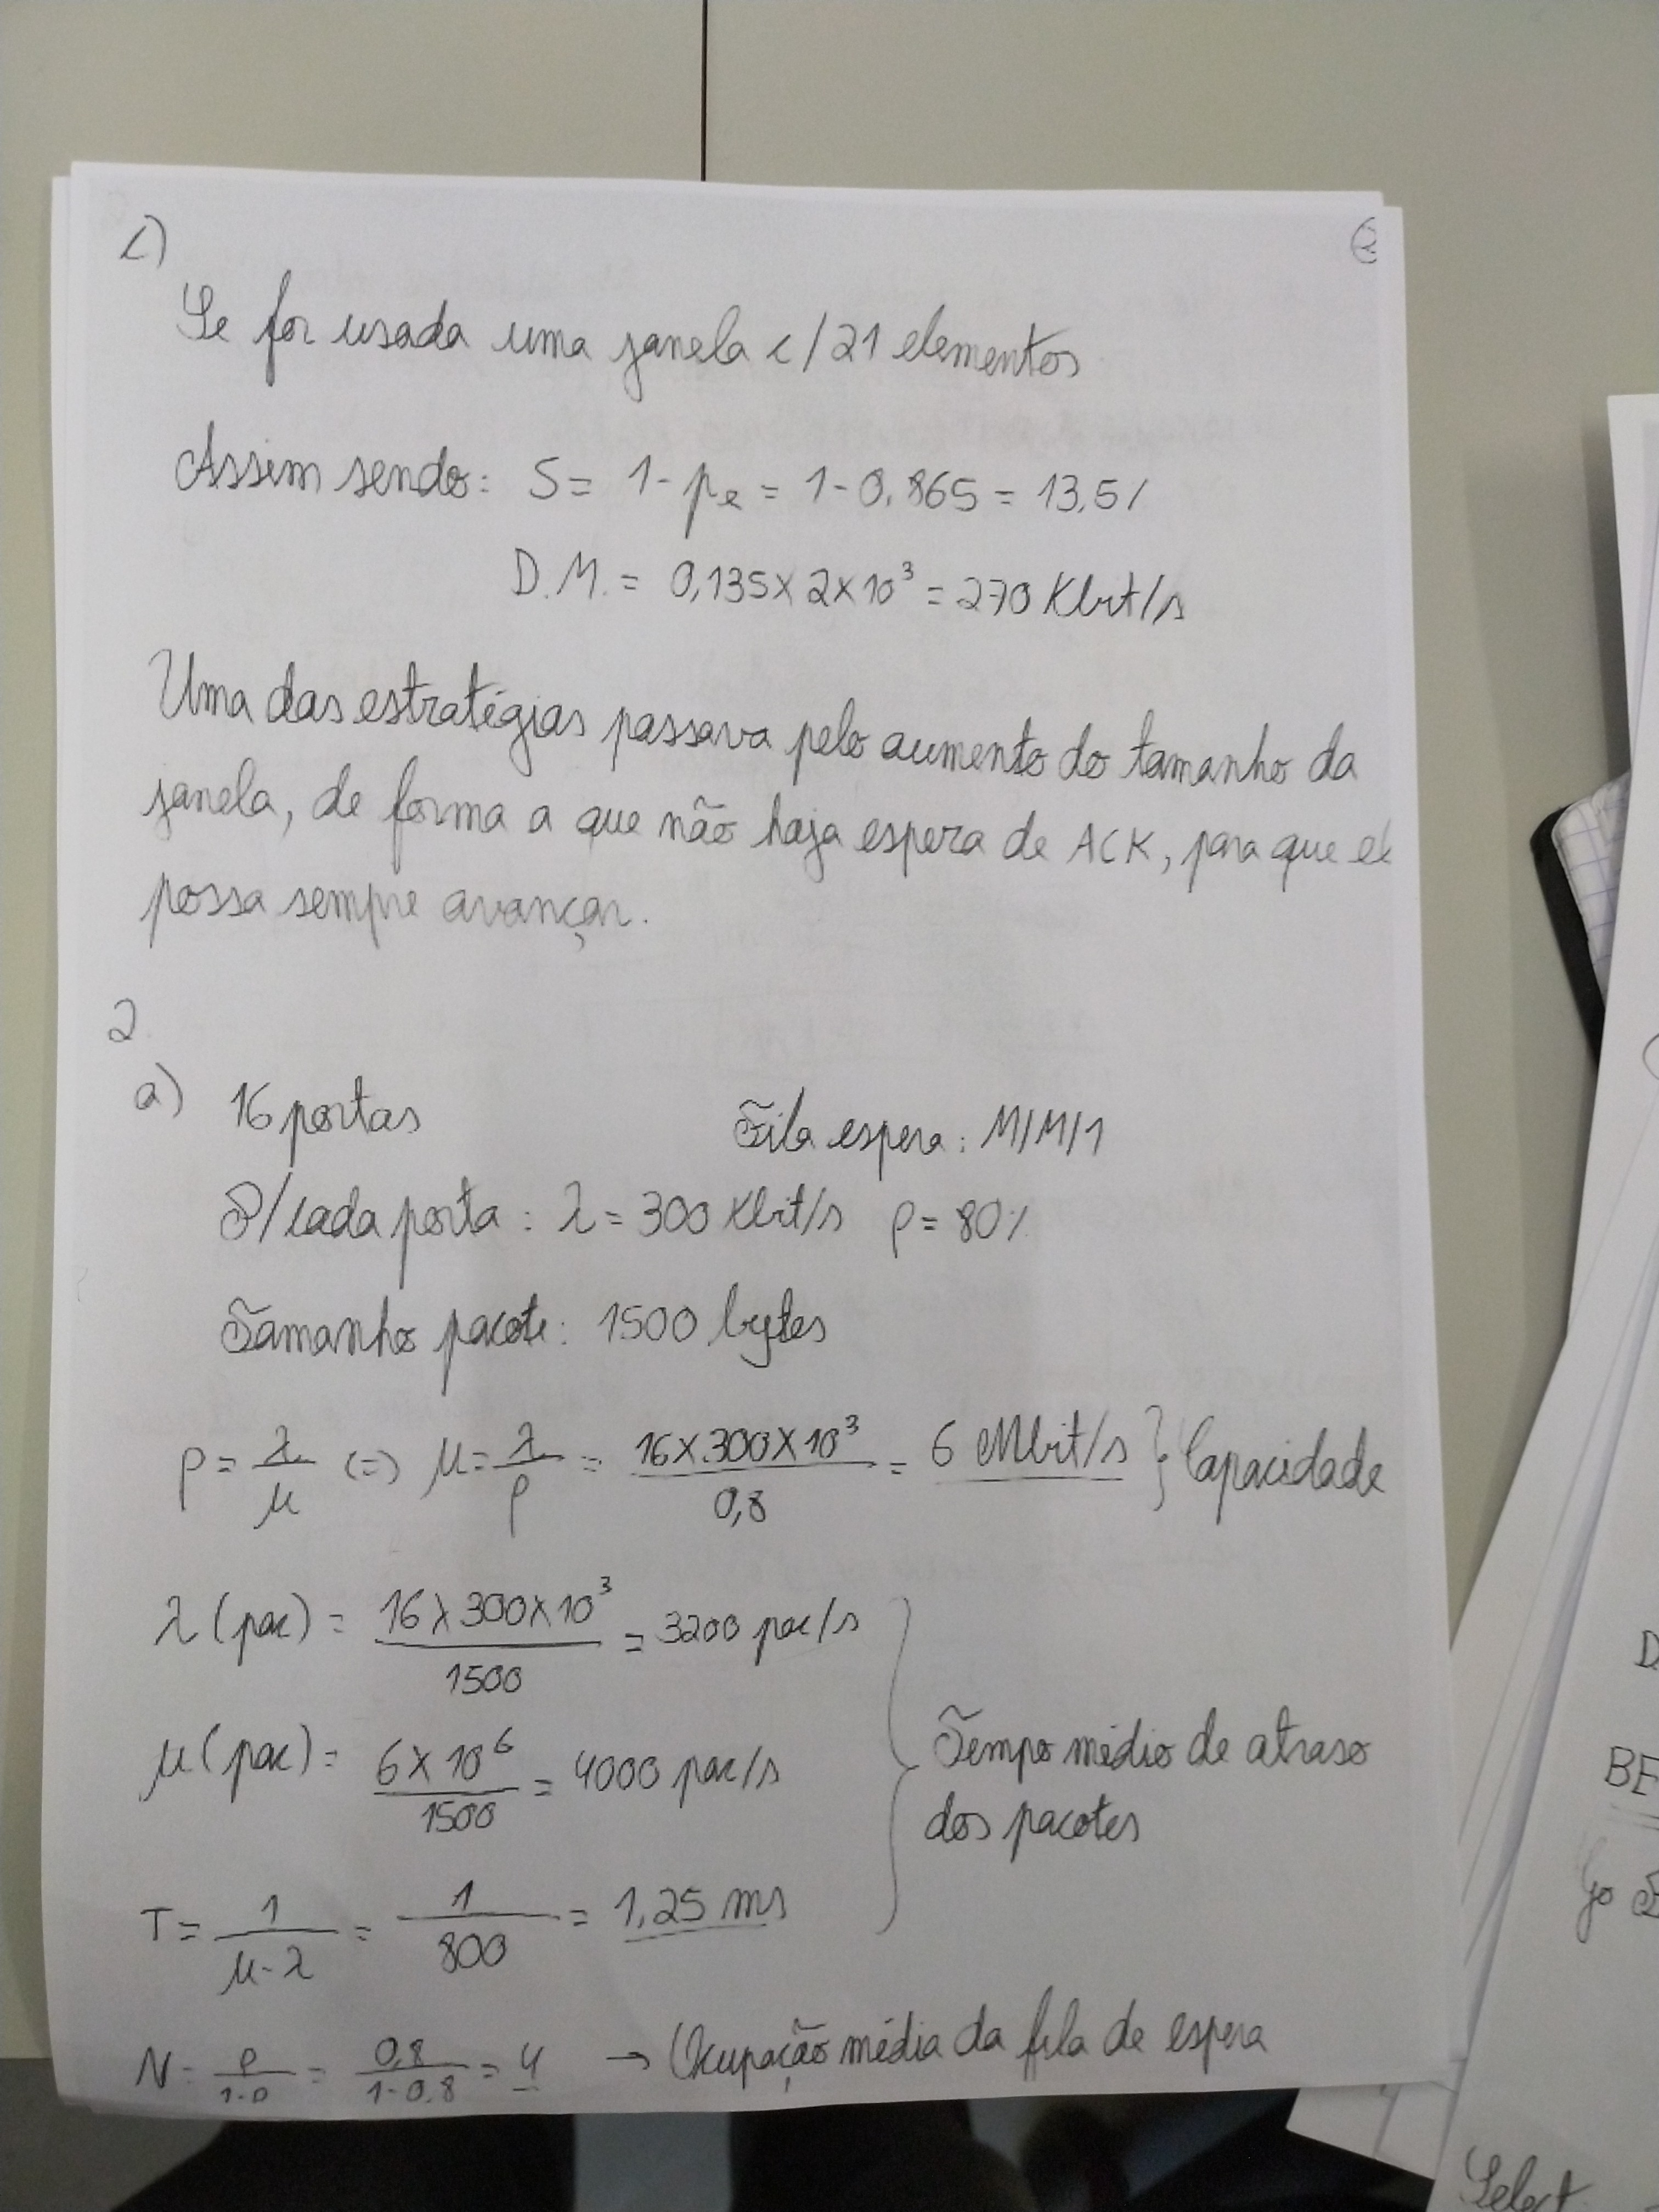 c)
2
Se for usada uma janela c/21 elementos
Assim sendo: S = 1 - pe = 1 - 0.865 = 13,5%
D.M. = 0,135 x 2 x 10³ = 270 Kbit/s
Uma das estratégias passava pelo aumento do tamanho da
janela, de forma a que não haja espera de ACK, para que el
possa sempre avançar.
2
a) 16 portas Fila espera: M/M/1
P/cada porta: λ = 300 Kbit/s ρ = 80%
Tamanho pacote: 1500 bytes
ρ = λ/μ (=) μ = λ/ρ = 16 x 300 x 10³ / 0,8 = 6 Mbit/s } Capacidade
λ (pac) = 16 x 300 x 10³ / 1500 = 3200 pac/s
μ (pac) = 6 x 10⁶ / 1500 = 4000 pac/s
Tempo médio de atraso
dos pacotes
T = 1/μ-λ = 1/800 = 1,25 ms
N = ρ/1-ρ = 0,8/1-0,8 = 4 → Ocupação média da fila de espera
D
BE
Go
Select